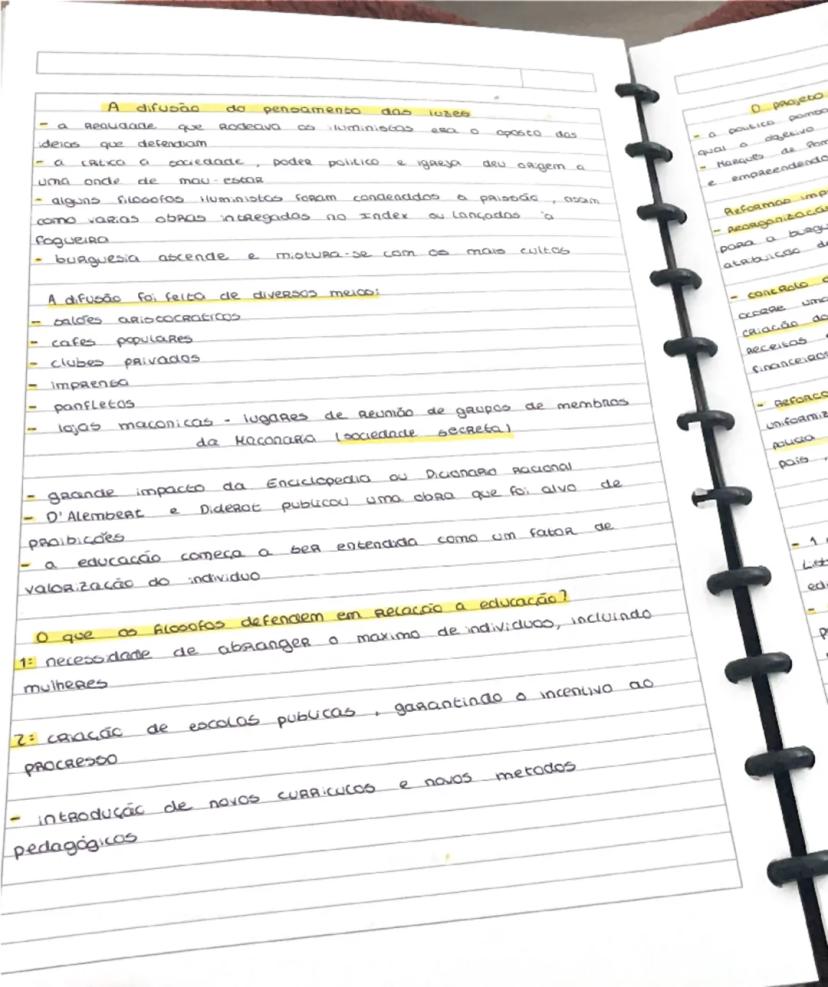 A difusão do pensamento das luzes
- a realidade que rodeava os iluministas era o oposto das
ideias que defendiam
- a critica a sociedade, poder politico e igreja deu origem a
uma onde de mau-estar
- alguns filosofos iluministas foram condenados a prissão, assim
como varias obras intregadas no Index ou lançadas à
fogueira
- burguesia ascende e mistura-se com os mais cultos
A difusão foi feita de diversos meios:
- salões aristocraticos
- cafes populares
- clubes privados
- imprensa
- panfletos
- lojas maconicas - lugares de reunião de grupos de membros
da Maconaria (sociedade secreta)
- grande impacto da Enciclopedia ou Dicionario Racional
- D'Alembert e Diderot publicou uma obra que foi alvo de
proibições
- a educação começa a ser entendida como um fator de
valorização do individuo
O que os filosofos defendem em relação a educação?
1: necessidade de abranger o maximo de individuos, incluindo
mulheres
2: criação de escolas publicas, garantindo o incentivo ao
progresso
- introdução de novos curriculos e novos metodos
pedagógicos
O projeto
- a politica pomba
qual o objetivo
- Marques de Pom
e empreendendo
Reformas imp
- Reorganizaca
para a burgu
atribuição d
- controlo
ocorre uma
criação do
receitas
financeiros
- Reforço
uniformiz
policia
pais
- 1
edi